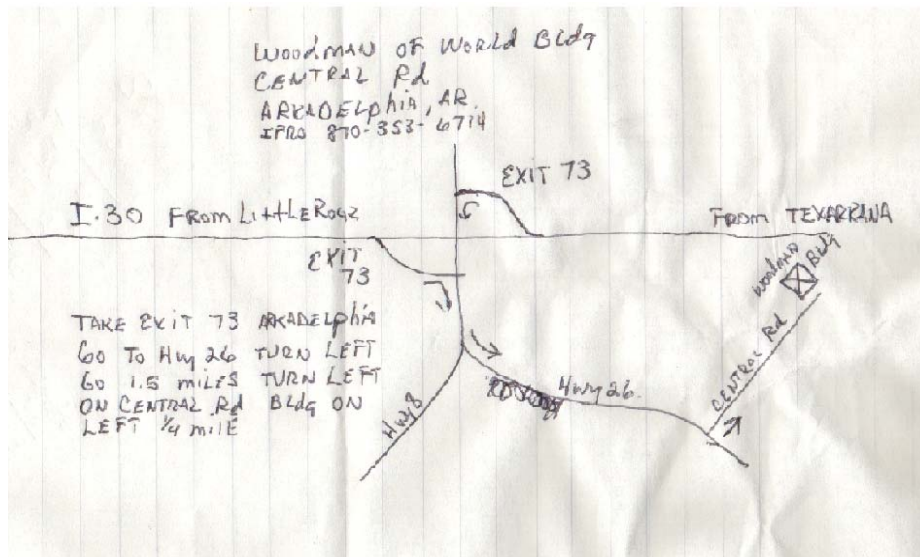 WOODMAN OF WORLD Bldg
CENTRAL Rd
ARKADELphiA, AR.
870-353-6714
EXIT 73
I-30 FROM LittLERock
FROM TEXARKANA
EXIT
73
WOODMAN
Bldg
TAKE EXIT 73 ARKADELphiA
GO TO Hwy 26 TURN LEFT
GO 1.5 MILES TURN LEFT
ON CENTRAL Rd Bldg ON
LEFT 1/4 MILE
Hwy 8
Hwy 26.
CENTRAL Rd